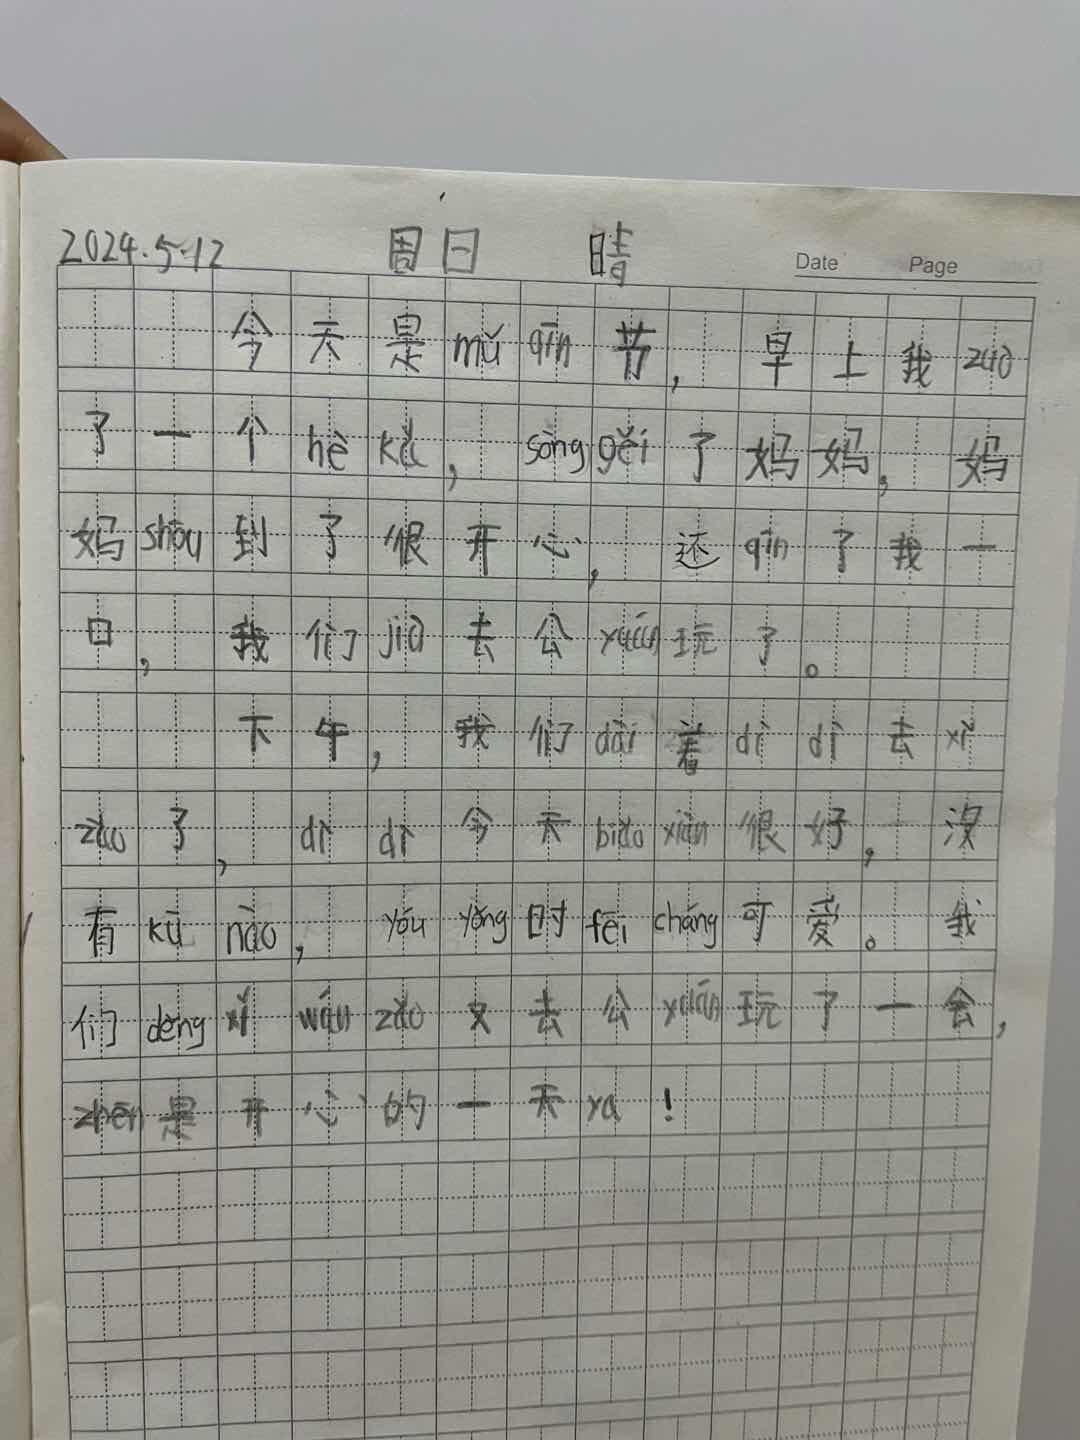 2024.5.12 周日 晴
Date Page
今天是mǔ qīn节，早上我zuò
了一个hè kǎ，sòng gěi了妈妈，妈
妈shōu到了很开心，还qīn了我一
口，我们jiù去公yuán玩了。
下午，我们dài着dì dì去xǐ
zǎo了，dì dì今天biǎo xiàn很好，没
有kū nào，yóu yǒng时fēi cháng可爱。我
们děng xǐ wán zǎo又去公yuán玩了一会，
zhēn是开心的一天ya！